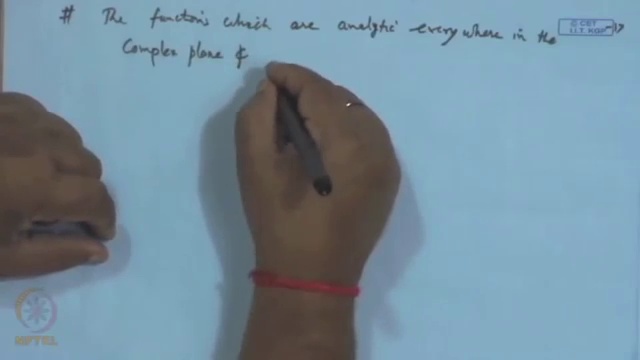 # The functions which are analytic everywhere in the
Complex plane ₵
© CET
I.I.T. KGP
NPTEL